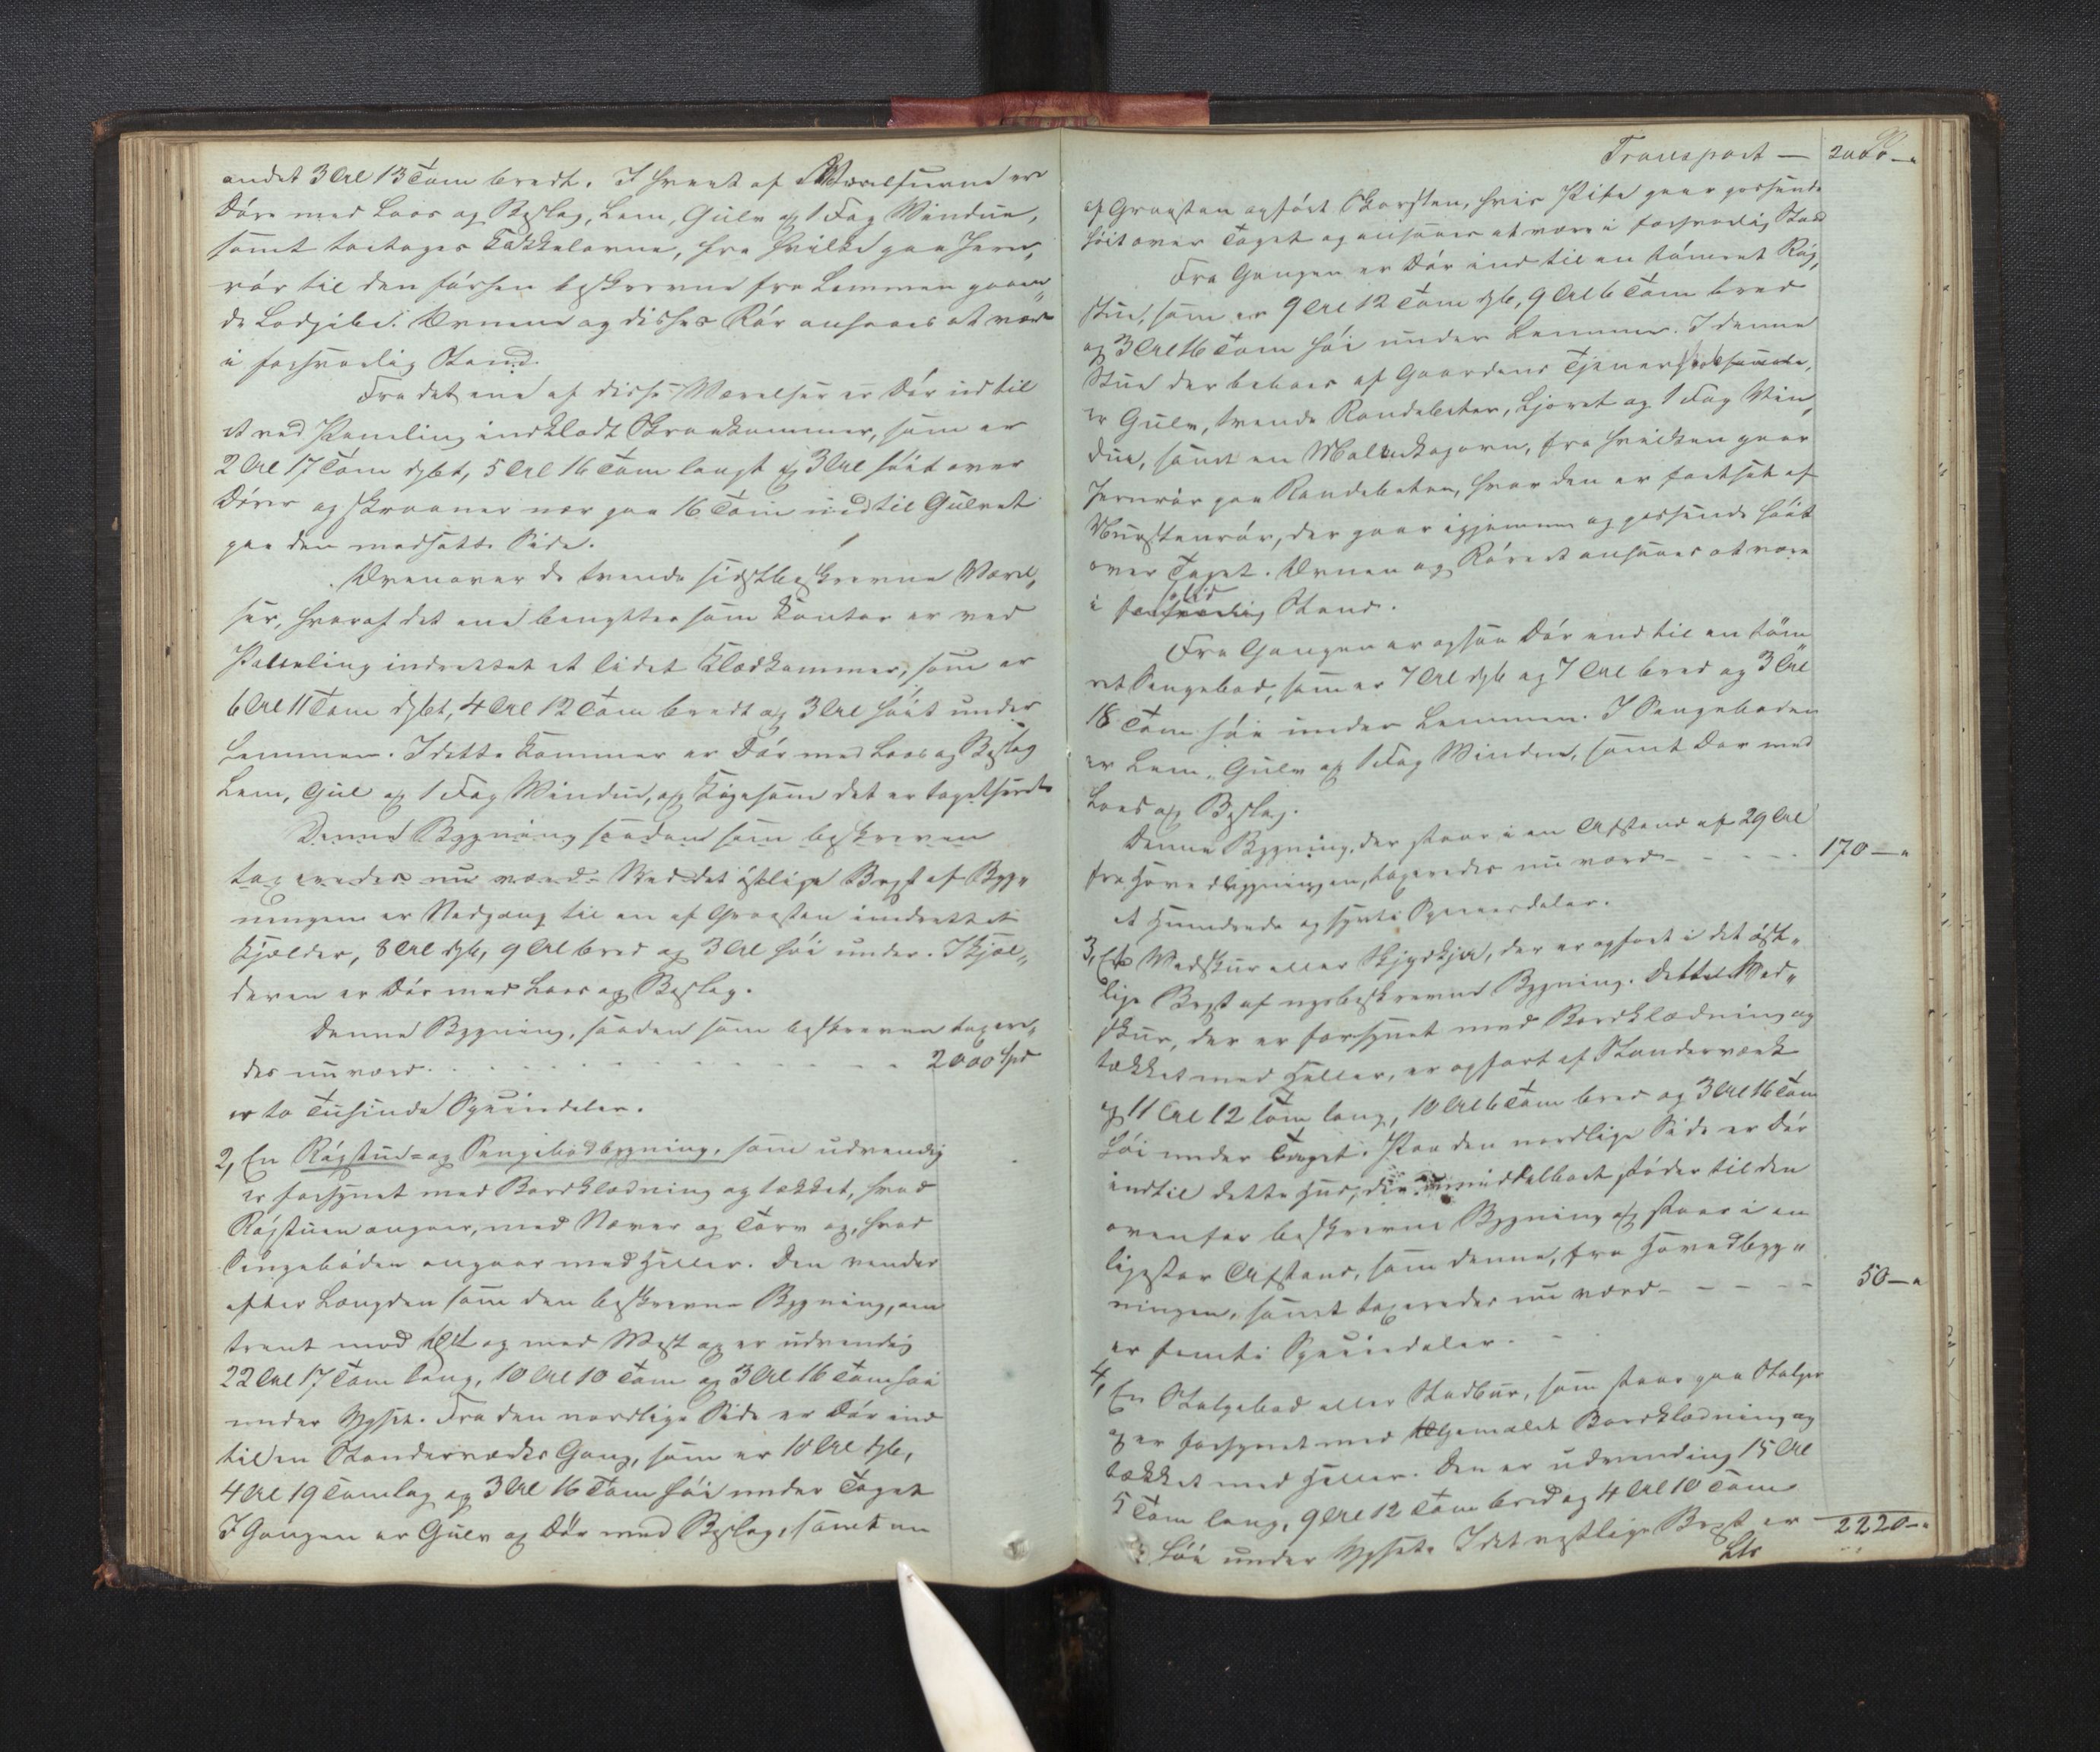 andet 3 Al 13 Tom bredt. I hvert af Værelserne ere
Døre med Laas og Beslag, Lem, Gulv og 1 Fag Vindue,
samt toetages Kakkelovne, fra hvilke gaa Jern,
rør til den førhen beskrevne fra Lemmen gaaen„
de Lodpibe. Ovnene og disses Rør ansaaes at være
i forsvarlig Stand.
Fra det ene af disse Værelser er Dør ud til
et ved Paneling indklædt Skraakammer, som er
2 Al 17 Tom dybt, 5 Al 16 Tom langt og 3 Al høit over
Døren og skraaner ner paa 16 Tom ned til Gulvet
paa den modsatte Side.
Ovenover de tvende sidstbeskrevne Værel,
ser, hvoraf det ene benyttes som Kontor er ved
Paneling indrettet et lidet Klædkammer, som er
6 Al 11 Tom dybt, 4 Al 12 Tom bredt og 3 Al høit under
Lemmen. I dette Kammer er Dør med Laas og Beslag
Lem, Gul og 1 Fag Vindue, og ligesom det er
Denne Bygning saadan som beskreven
taxeredes nu værd. Ved det østlige Bryst af Byg„
ningen er Nedgang til en af Graasten indrettet
Kjælder, 8 Al dyb, 9 Al bred og 3 Al høi under. I Kjæl„
deren er Dør med Laas og Beslag.
Denne Bygning, saadan som beskreven taxere,
des nu værd - - - - - - - - - 2000 Spd
er to Tusinde Speciedaler.
2, En Røgstue- og Sengebodbygning, som udvendig
er forsynet med Bordklædning og tækket, hvad
Røgstuen angaar, med Næver og Tørv og, hvad
Sengeboden angaar med Heller. Den vender
efter Længden som den beskrevne Bygning, om
trent mod Øst og mod Vest og er udvendig
22 Al 17 Tom lang, 10 Al 10 Tom og 3 Al 16 Tom høi
under Ufset. Fra den nordlige Side er Dør ind
til en Standerværks Gang, som er 10 Al dyb,
4 Al 19 Tom lag og 3 Al 16 Tom høi under Taget
I Gangen er Gulv og Dør med Beslag, samt en
Transport — 2000 —„
af Graasten opført Skorsten, hvis Pibe gaar passende
høit over Taget og ansaaes at være i forsvarlig Stand
Fra Gangen er Dør ind til en tømret Røg,
stue, som er 9 Al 12 Tom dyb, 9 Al 6 Tom bred
og 3 Al 16 Tom høi under Lemmen. I denne
Stue der beboes af Gaardens Tjenerskab,
er Gulv, tvende Randebeter, Ljoret og 1 Fag Vin,
due, samt en Malmkogovn, fra hvilken gaar
Jernrør paa Randebeten, hvor den er fortsat af
Murstensrør, der gaar igjennem og passende høit
over Taget. Ovnen og Røret ansaaes at være
i solid Stand.
Fra Gangen er ogsaa Dør ind til en töm„
ret Sengebod, som er 7 Al dyb og 7 Al bred og 3 Al
18 Tom høi under Lemmen. I Sengeboden
er Lem, Gulv og 1 Fag Vindue, samt Dør med
Laas og Beslag.
Denne Bygning, der staar i en Afstand af 29 Al
fra Hovedbygningen, taxeredes nu værd - - - - 170 —„
et Hundrede og sytti Speciesdaler.
3, Et Vedskur eller Skydskjul, der er opført i det øst„
lige Bryst af nysbeskrevne Bygning. Dette Ved„
skur, der er forsynet med Bordklædning og
tækket med Heller, er opført af Standerværk
og 11 Al 12 Tom lang, 10 Al 6 Tom bred og 3 Al 16 Tom
høi under Taget. Paa den nordlige Side er Dør
indtil dette Huus, der ummiddelbart støder til den
ovenfor beskrevne Bygning og staar i en
ligestor Afstand, som denne, fra Hovedbyg„
ningen, samt taxeredes nu værd - - - - 50 —„
er femti Speciedaler.
4, En Stolpebod eller Stadbur, som staar paa Stolper
og er forsynet med Bordklædning og
tækket med Heller. Den er udvendig 15 Al
5 Tom lang, 9 Al 12 Tom bred og 4 Al 10 Tom
høi under Ufset. I det vestlige Bryst er
2220 —„
Lts